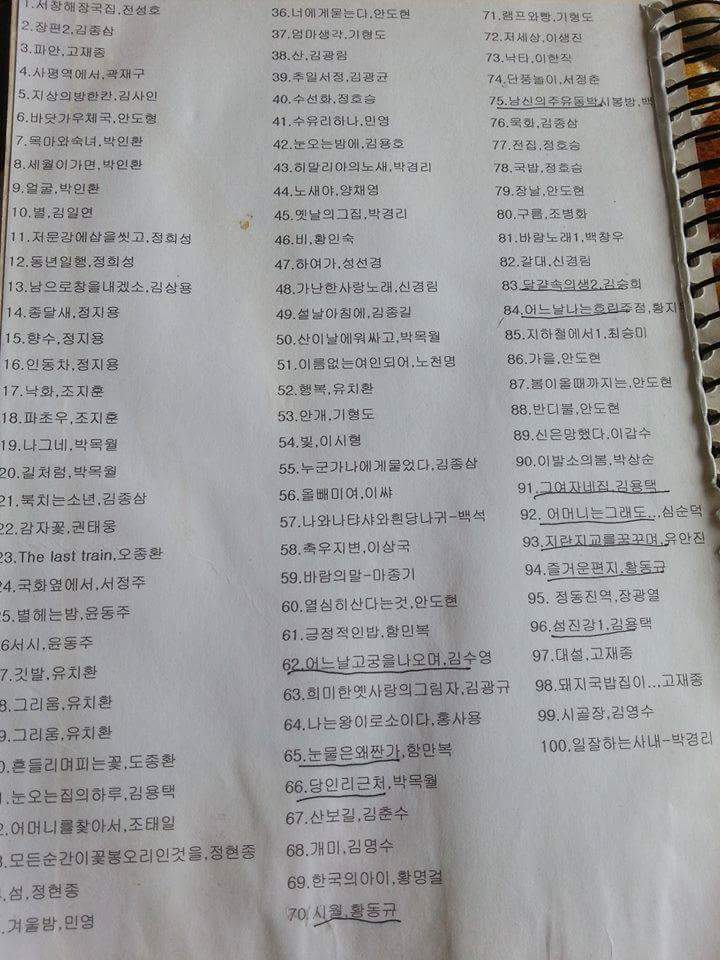 1.서창해장국집,전성호
2.장편2,김종삼
3.파안,고재종
4.사평역에서,곽재구
5.지상의방한칸,김사인
6.바닷가우체국,안도형
7.목마와숙녀,박인환
8.세월이가면,박인환
9.얼굴,박인환
10.별,김일연
11.저문강에삽을씻고,정희성
12.동년일행,정희성
13.남으로창을내겠소,김상용
14.종달새,정지용
15.향수,정지용
16.인동차,정지용
17.낙화,조지훈
18.파초우,조지훈
19.나그네,박목월
20.길처럼,박목월
21.북치는소년,김종삼
22.감자꽃,권태웅
23.The last train,오종환
24.국화옆에서,서정주
25.별헤는밤,윤동주
26서시,윤동주
7.깃발,유치환
8.그리움,유치환
9.그리움,유치환
0.흔들리며피는꽃,도종환
1.눈오는집의하루,김용택
2.어머니를찾아서,조태일
3.모든순간이꽃봉오리인것을,정현종
.섬,정현종
.겨울밤,민영
36.너에게묻는다,안도현
37.엄마생각,기형도
38.산,김광림
39.추일서정,김광균
40.수선화,정호승
41.수유리하나,민영
42.눈오는밤에,김용호
43.히말리아의노새,박경리
44.노새야,양채영
45.옛날의그집,박경리
46.비,황인숙
47.하여가,성선경
48.가난한사랑노래,신경림
49.설날아침에,김종길
50.산이날에워싸고,박목월
51.이름없는여인되어,노천명
52.행복,유치환
53.안개,기형도
54.빛,이시형
55.누군가나에게물었다,김종삼
56.올빼미여,이쌰
57.나와나탸샤와흰당나귀-백석
58.축우지변,이상국
59.바람의말-마종기
60.열심히산다는것,안도현
61.긍정적인밥,함민복
62.어느날고궁을나오며,김수영
63.희미한옛사랑의그림자,김광규
64.나는왕이로소이다,홍사용
65.눈물은왜짠가,함만복
66.당인리근처,박목월
67.산보길,김춘수
68.개미,김명수
69.한국의아이,황명걸
70.시월,황동규
71.램프와빵,기형도
72.저세상,이생진
73.낙타,이한직
74.단풍놀이,서정춘
75.남신의주유동박시봉방,백
76.묵화,김종삼
77.전집,정호승
78.국밥,정호승
79.장날,안도현
80.구름,조병화
81.바람노래1,백창우
82.갈대,신경림
83.달걀속의생2,김승희
84.어느날나는흐린주점,황지
85.지하철에서1,최승미
86.가을,안도현
87.봄이올때까지는,안도현
88.반디불,안도현
89.신은망했다,이갑수
90.이발소의봄,박상순
91.그여자네집,김용택
92. 어머니는그래도...심순덕
93.지란지교를꿈꾸며,유안진
94.즐거운편지,황동규
95. 정동진역,장광열
96.섬진강1,김용택
97.대설,고재종
98.돼지국밥집이...고재종
99.시골장,김영수
100.일잘하는사내-박경리